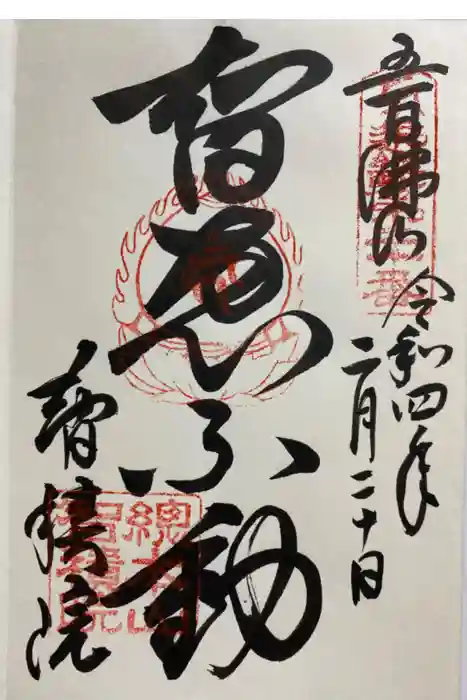 五百佛山
令和四年
二月二十日
智恵不動
智積院
總本山
智積院